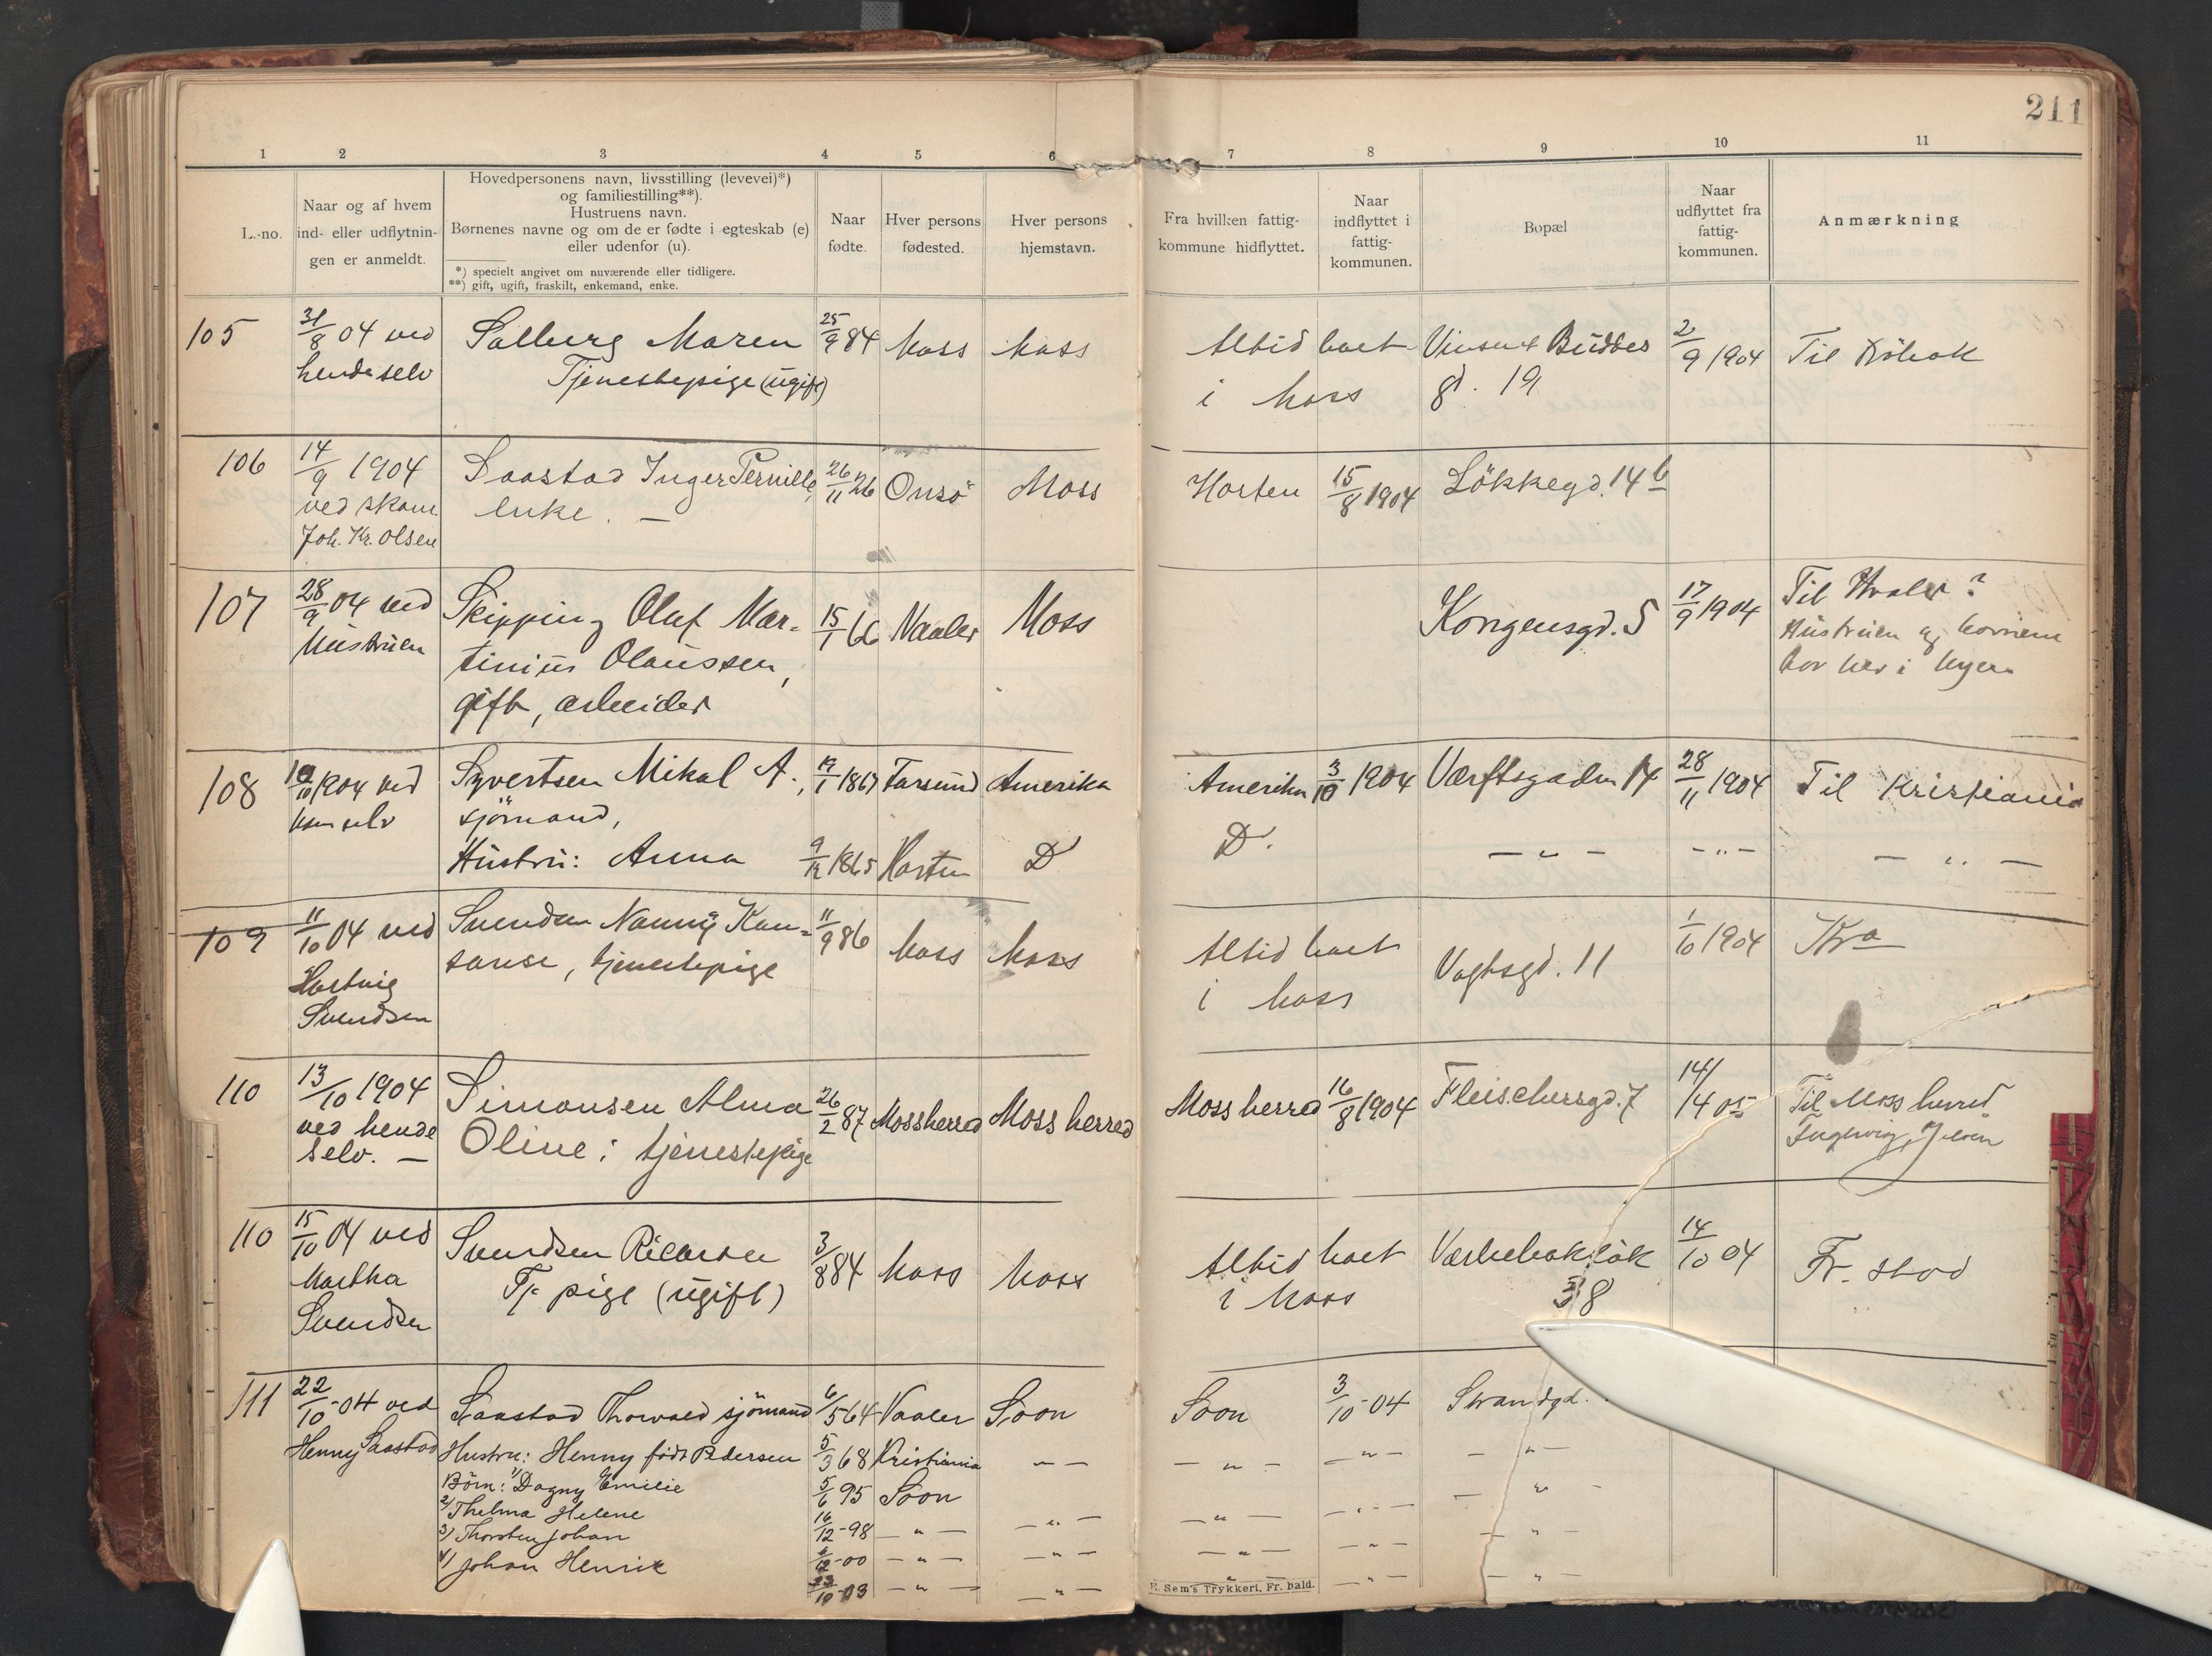 211
1 2 3 4 5 6 7 8 9 10 11
L.-no.
Naar og af hvem
ind- eller udflytnin-
gen er anmeldt.
Hovedpersonens navn, livsstilling (levevei)*)
og familiestilling**).
Hustruens navn.
Børnenes navne og om de er fødte i egteskab (e)
eller udenfor (u).
*) specielt angivet om nuværende eller tidligere.
**) gift, ugift, fraskilt, enkemand, enke.
Naar
fødte.
Hver persons
fødested.
Hver persons
hjemstavn.
Fra hvilken fattig-
kommune hidflyttet.
Naar
indflyttet i
fattig-
kommunen.
Bopæl
Naar
udflyttet fra
fattig-
kommunen.
Anmærkning
105 31/8 04 ved Solberg Maren 25/9 84 Moss Moss Altid boet Vincent Buddes 2/9 1904 Til Drøbak
hende selv Tjenestepige (ugift) i Moss gd. 19
106 14/9 1904 Saastad Inger Pernille, 26/11 26 Onsö Moss Horten 15/8 1904 Lökkegd. 14 b
ved skom. enke. —
Joh. Kr. Olsen
107 28/9 04 ved Skipping Olaf Mar- 15/1 66 Vaaler Moss Kongensgd. 5 17/9 1904 Til Hvaler?
Hustruen tinius Olaussen, Hustruen og børnene
gift, arbeider bor her i byen
108 10/10 1904 ved Syvertsen Mikal A., 19/1 1867 Farsund Amerika Amerika 3/10 1904 Værftsgaden 14 28/11 1904 Til Kristiania
ham selv sjömand,
Hustru: Anna 9/12 1865 Horten Do Do. — " — — " — — " —
109 11/10 04 ved Svendsen Nanny Kon- 11/9 86 Moss Moss Altid boet Vogtsgd. 11 1/10 1904 Kra
Hartvig stanse, tjenestepige i Moss
Svendsen
110 13/10 1904 Simonsen Alma 26/2 87 Mossherred Moss herred Moss herred 16/8 1904 Fleischersgd. 7 14/4 05 Til Moss herred
ved hende Oline; tjenestepige
selv. —
110 15/10 04 ved Svendsen Ricarda 3/8 84 Moss Moss Altid boet Værlebaklök 14/10 04 Fr. stad
Martha Tj. pige (ugift) i Moss 38
Svendsen
111 22/10-04 ved Saastad Thorvald sjömand 6/5 64 Vaaler Soon Soon 3/10-04 Strandgd.
Henny Saastad Hustru: Henny født Pedersen 5/3 68 Kristiania — — — " — — " — — " —
Börn: 1) Dagny Emilie 5/6 95 Soon — " —
2) Thelma Helene 16/12-98 — " — — " — — " — — " —
3) Thorsten Johan 6/12-00 — " — — " — — " — — " — — " —
4) Johan Henrik 23/10-03 — " — — " — — " — — " — — " —
E. Sem's Trykkeri, Fr. hald.